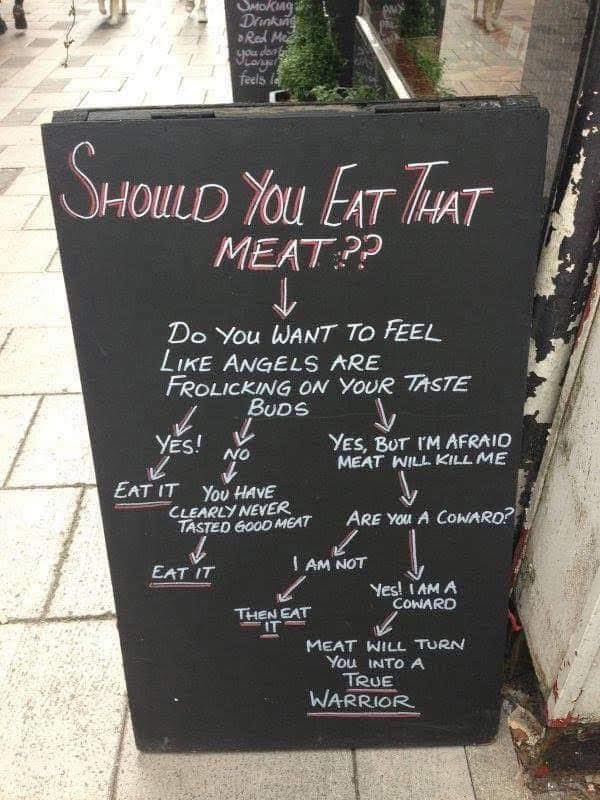 SMOKING
DRINKING
RED
YOU DON'T
feels
SHOULD YOU EAT THAT
MEAT??
DO YOU WANT TO FEEL
LIKE ANGELS ARE
FROLICKING ON YOUR TASTE
BUDS
YES!
NO
YES, BUT I'M AFRAID
MEAT WILL KILL ME
EAT IT
YOU HAVE
CLEARLY NEVER
TASTED GOOD MEAT
ARE YOU A COWARD?
EAT IT
I AM NOT
YES! I AM A
COWARD
THEN EAT
IT
MEAT WILL TURN
YOU INTO A
TRUE
WARRIOR